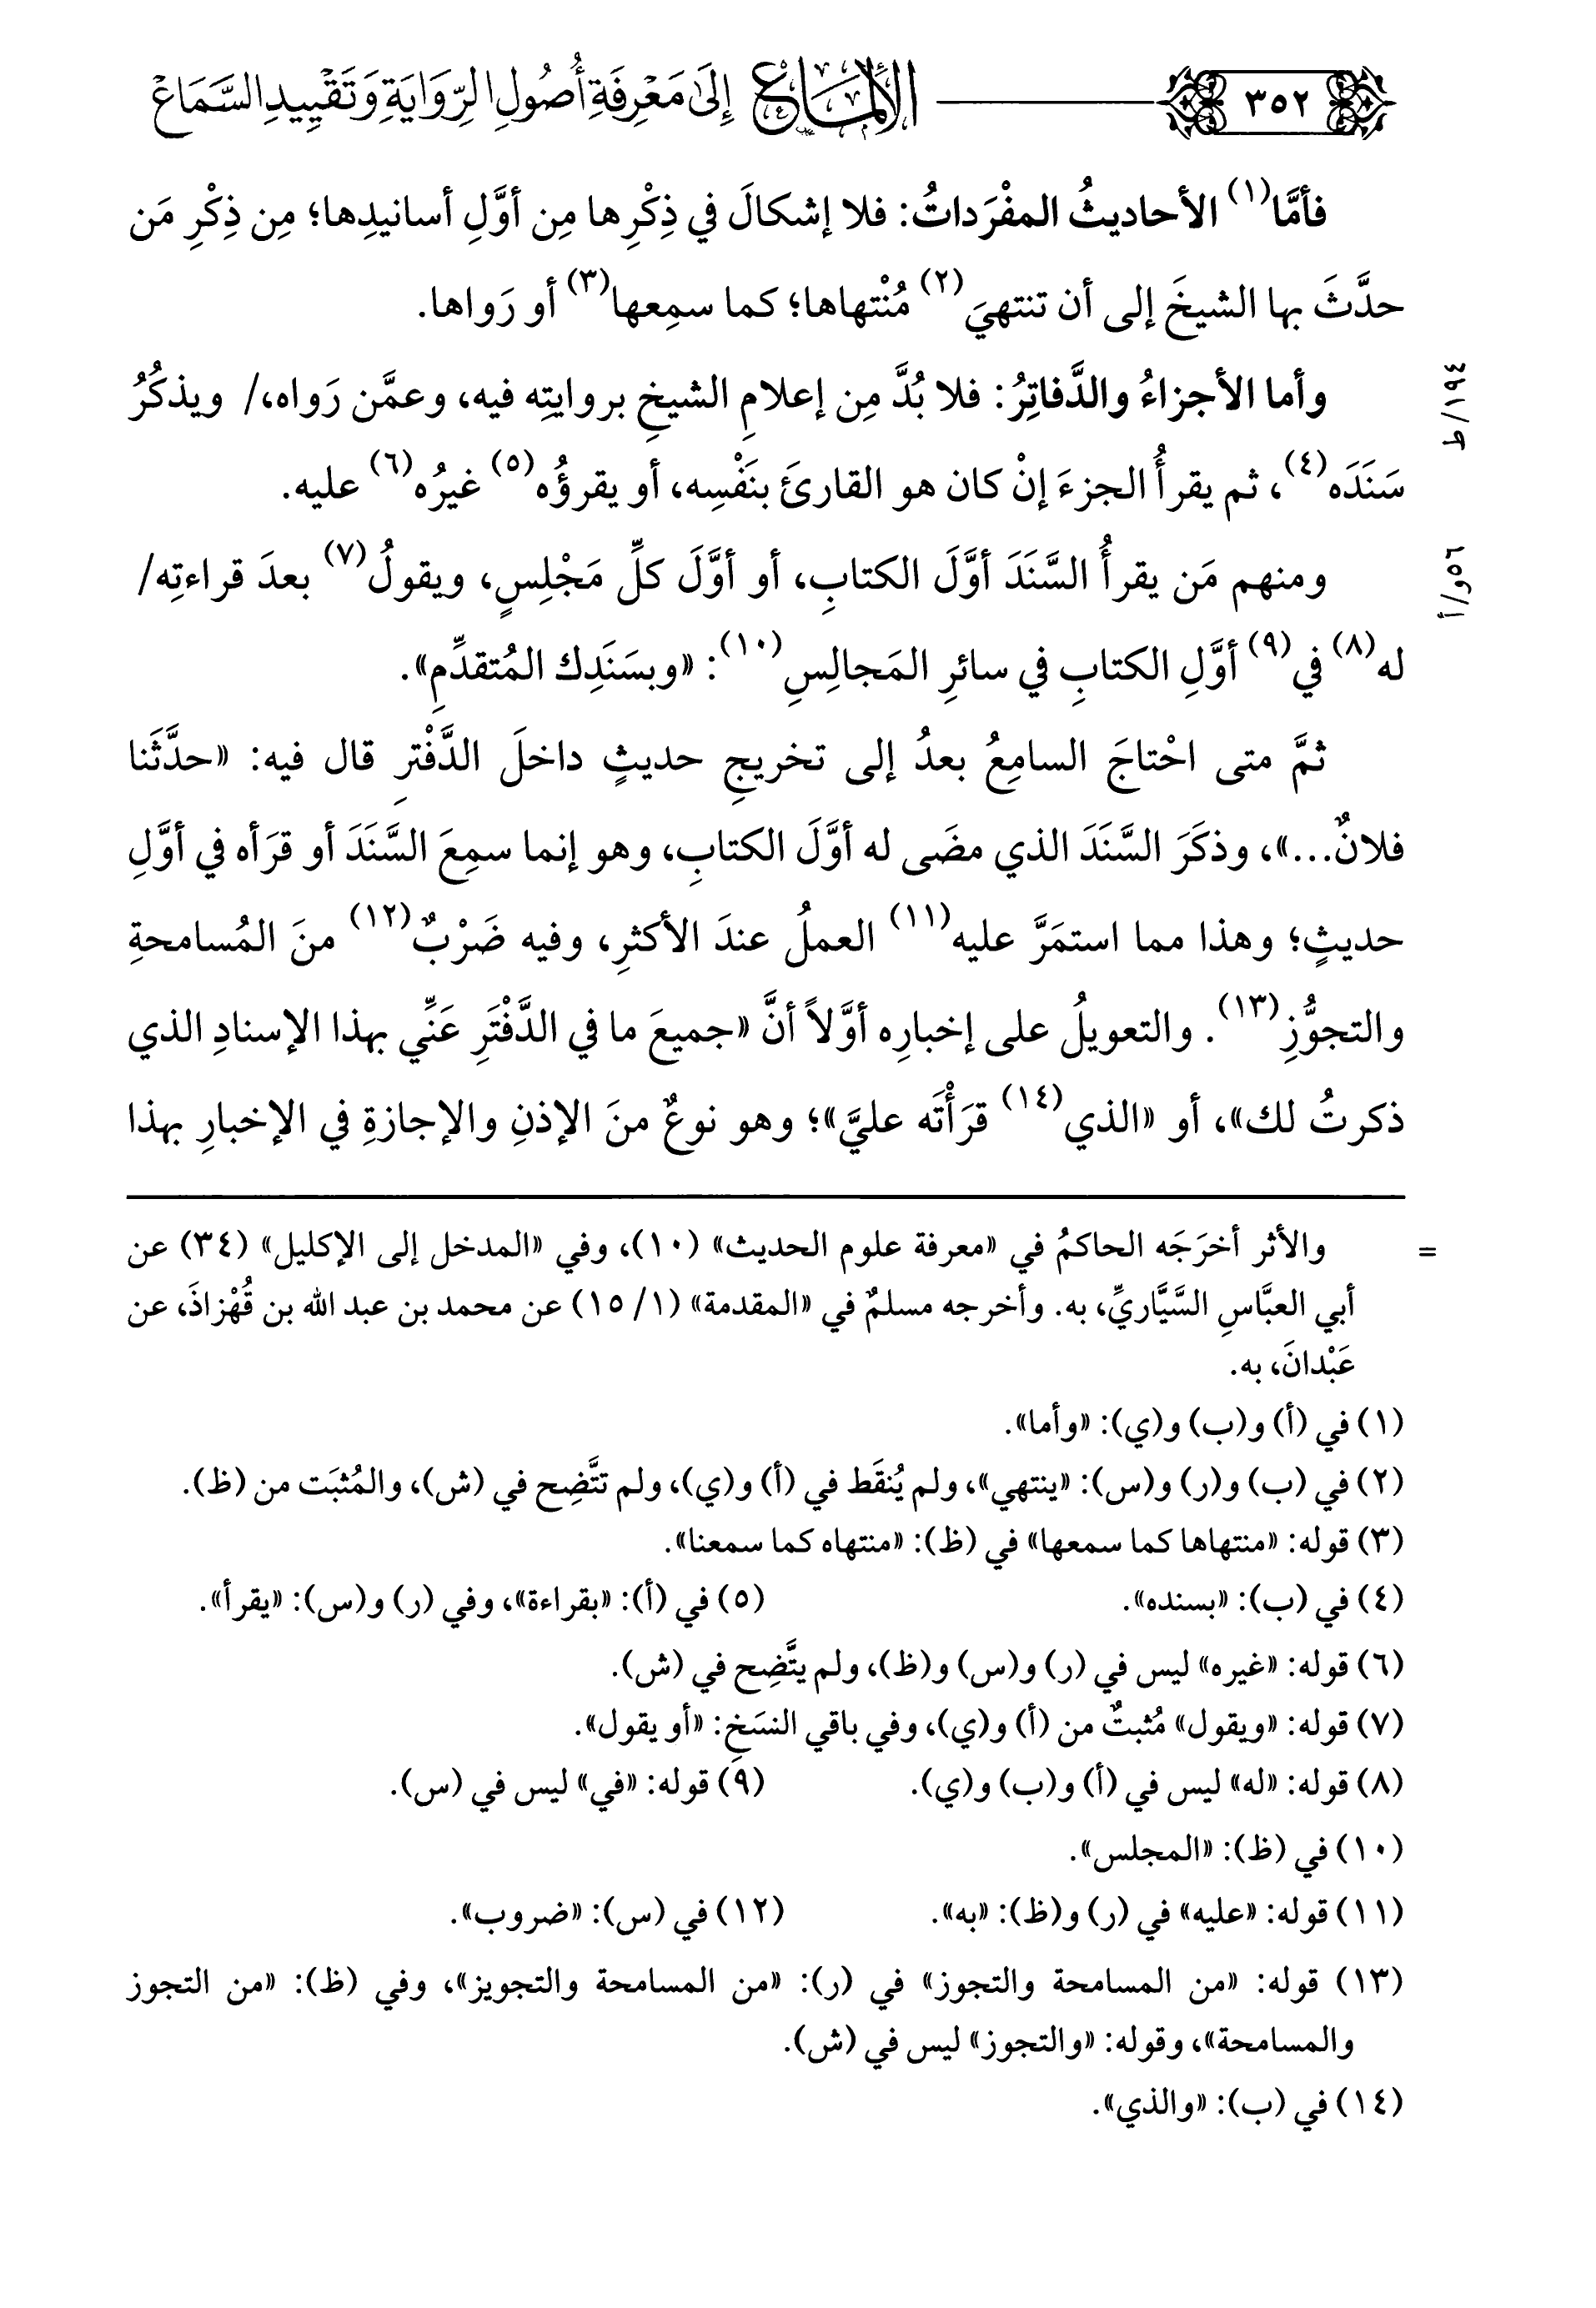 ٣٥٢ الإلماع إِلَىٰ مَعْرِفَةِ أُصُولِ الرِّوَايَةِ وَتَقْيِيدِ السَّمَاعْ
فأمَّا(١) الأحاديثُ المفْرَداتُ: فلا إشكالَ في ذِكْرِها مِن أوَّلِ أسانيدِها؛ مِن ذِكْرِ مَن
حدَّثَ بها الشيخَ إلى أن تنتهيَ(٢) مُنْتهاها؛ كما سمِعها(٣) أو رَواها.
وأما الأجزاءُ والدَّفاتِرُ: فلا بُدَّ مِن إعلامِ الشيخِ بروايتِه فيه، وعمَّن رَواه،/ ويذكُرُ
١٩٤/ظ
سَنَدَه(٤)، ثم يقرأُ الجزءَ إنْ كان هو القارئَ بنَفْسِه، أو يقرؤُه(٥) غيرُه(٦) عليه.
ومنهم مَن يقرأُ السَّنَدَ أوَّلَ الكتابِ، أو أوَّلَ كلِّ مَجْلِسٍ، ويقولُ(٧) بعدَ قراءتِه/
٥٦و/أ
له(٨) في(٩) أوَّلِ الكتابِ في سائرِ المَجالِسِ(١٠): «وبسَنَدِك المُتقدِّمِ».
ثمَّ متى احْتاجَ السامِعُ بعدُ إلى تخريجِ حديثٍ داخلَ الدَّفْترِ قال فيه: «حدَّثَنا
فلانٌ...»، وذكَرَ السَّنَدَ الذي مضَى له أوَّلَ الكتابِ، وهو إنما سمِعَ السَّنَدَ أو قرَأه في أوَّلِ
حديثٍ؛ وهذا مما استمَرَّ عليه(١١) العملُ عندَ الأكثرِ، وفيه ضَرْبٌ(١٢) منَ المُسامحةِ
والتجوُّزِ(١٣). والتعويلُ على إخبارِه أوَّلاً أنَّ «جميعَ ما في الدَّفْتَرِ عَنِّي بهذا الإسنادِ الذي
ذكرتُ لك»، أو «الذي(١٤) قرَأْتَه عليَّ»؛ وهو نوعٌ منَ الإذنِ والإجازةِ في الإخبارِ بهذا
= والأثر أخرَجَه الحاكمُ في «معرفة علوم الحديث» (١٠)، وفي «المدخل إلى الإكليل» (٣٤) عن
أبي العبَّاسِ السَّيَّاريِّ، به. وأخرجه مسلمٌ في «المقدمة» (١/ ١٥) عن محمد بن عبد الله بن قُهْزاذَ، عن
عَبْدانَ، به.
(١) في (أ) و(ب) و(ي): «وأما».
(٢) في (ب) و(ر) و(س): «ينتهي»، ولم يُنقَط في (أ) و(ي)، ولم تتَّضِح في (ش)، والمُثبَت من (ظ).
(٣) قوله: «منتهاها كما سمعها» في (ظ): «منتهاه كما سمعنا».
(٤) في (ب): «بسنده». (٥) في (أ): «بقراءة»، وفي (ر) و(س): «يقرأ».
(٦) قوله: «غيره» ليس في (ر) و(س) و(ظ)، ولم يتَّضِح في (ش).
(٧) قوله: «ويقول» مُثبتٌ من (أ) و(ي)، وفي باقي النسَخِ: «أو يقول».
(٨) قوله: «له» ليس في (أ) و(ب) و(ي). (٩) قوله: «في» ليس في (س).
(١٠) في (ظ): «المجلس».
(١١) قوله: «عليه» في (ر) و(ظ): «به». (١٢) في (س): «ضروب».
(١٣) قوله: «من المسامحة والتجوز» في (ر): «من المسامحة والتجويز»، وفي (ظ): «من التجوز
والمسامحة»، وقوله: «والتجوز» ليس في (ش).
(١٤) في (ب): «والذي».